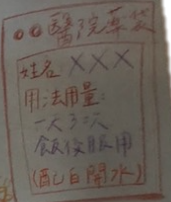 〇〇醫院藥袋
姓名 XXX
用法用量:
一天3次
飯後服用
(配白開水)